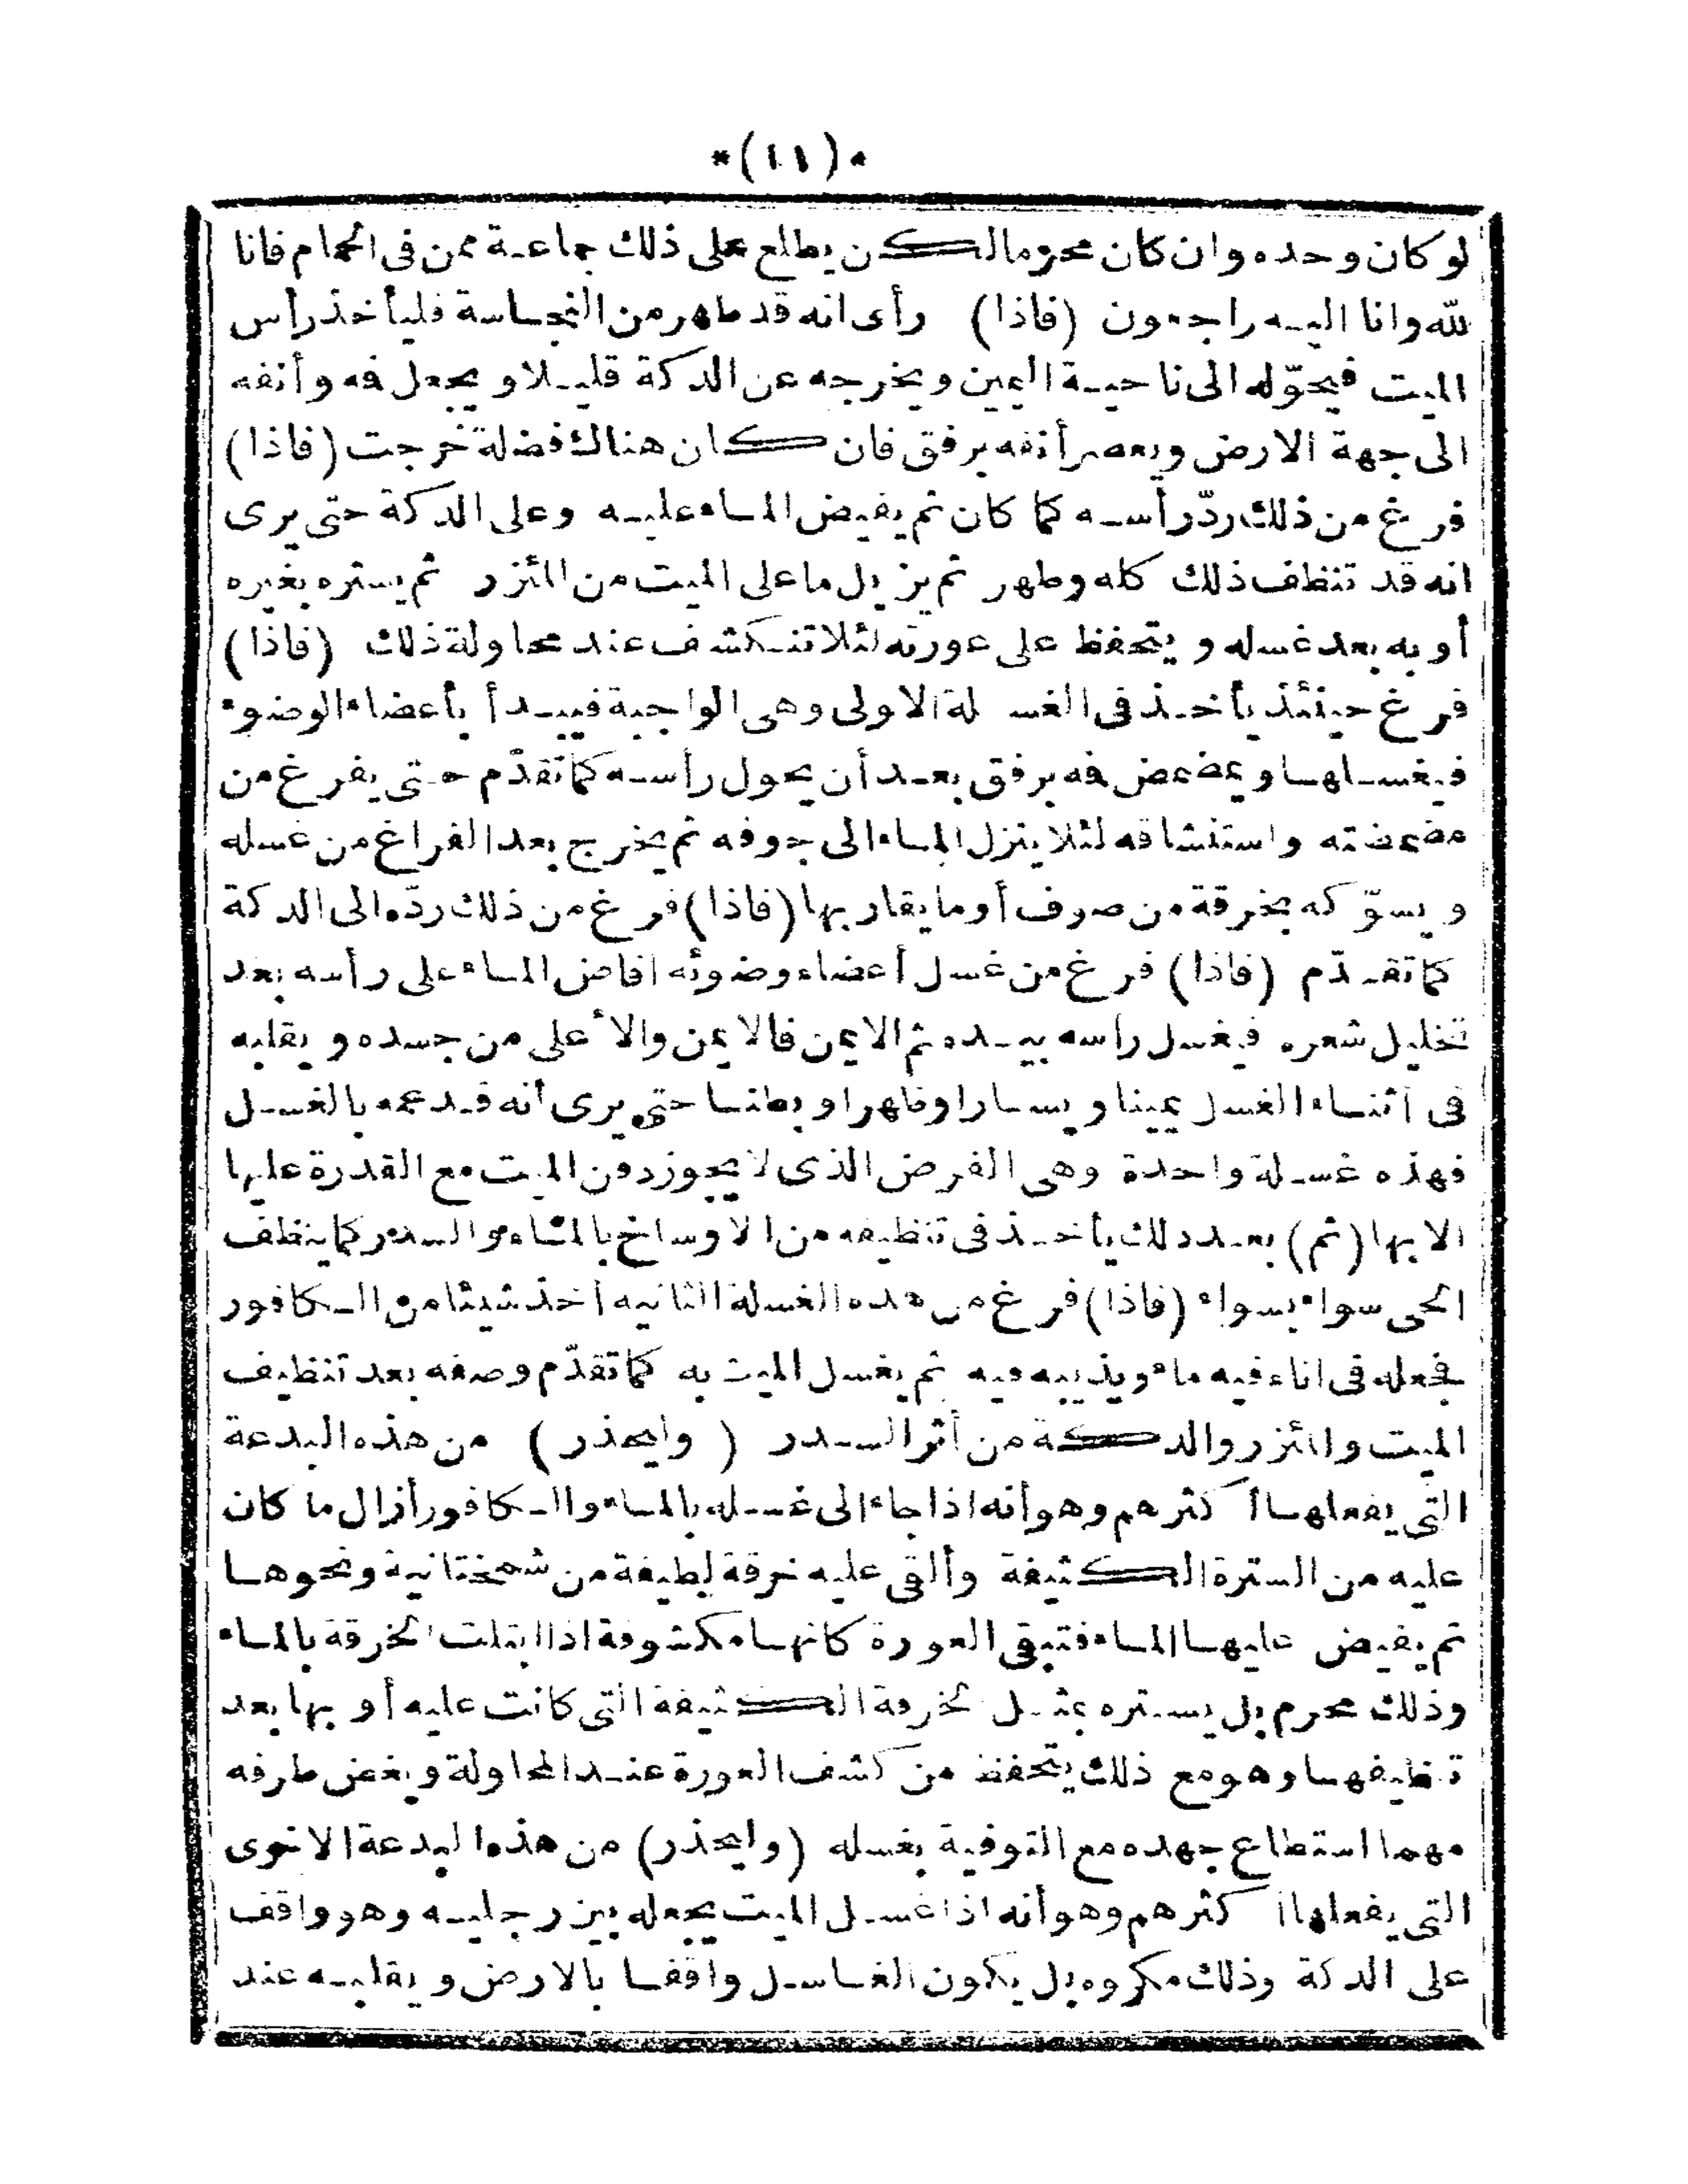 *(١١)*
لو كان وحده وان كان محرما لكن يطلع على ذلك جماعة ممن فى الحمام فانا
لله وانا اليه راجعون (فاذا) رأى انه قد طهر من النجاسة فليأخذ رأس
الميت فيحوّله الى ناحية اليمين ويخرجه عن الدكة قليلا ويجعل فه وأنفه
الى جهة الارض ويعصر أنفه برفق فان كان هناك فضلة خرجت (فاذا)
فرغ من ذلك ردّ رأسه كما كان ثم يفيض الماء عليه وعلى الدكة حتى يرى
انه قد تنظف ذلك كله وطهر ثم يزيل ما على الميت من المئزر ثم يستره بغيره
أو به بعد غسله ويتحفظ على عورته لئلا تنكشف عند محاولة ذلك (فاذا)
فرغ حينئذ يأخذ فى الغسلة الاولى وهى الواجبة فيبدأ بأعضاء الوضوء
فيغسلها ويمضمض فه برفق بعد أن يحول رأسه كما تقدّم حتى يفرغ من
مضمضته واستنشاقه لئلا ينزل الماء الى جوفه ثم يخرج بعد الفراغ من غسله
ويسوّكه بخرقة من صوف أو ما يقاربها (فاذا) فرغ من ذلك ردّه الى الدكة
كما تقدّم (فاذا) فرغ من غسل أعضاء وضوئه افاض الماء على رأسه بعد
تخليل شعره فيغسل رأسه بيده ثم الايمن فالايمن والأعلى من جسده ويقلبه
فى اثناء الغسل يمينا ويسارا وظهرا وبطنا حتى يرى أنه قد عمه بالغسل
فهذه غسلة واحدة وهى الفرض الذى لا يجوز دفن الميت مع القدرة عليها
الا بها (ثم) بعد ذلك يأخذ فى تنظيفه من الاوساخ بالماء والسدر كما ينظف
الحى سواء بسواء (فاذا) فرغ من هذه الغسلة الثانية أخذ شيئا من الكافور
فجعله فى اناء فيه ماء ويذيبه فيه ثم يغسل الميت به كما تقدّم وصفه بعد تنظيف
الميت والمئزر والدكة من أثر السدر (وليحذر) من هذه البدعة
التى يفعلها أكثرهم وهو أنه اذا جاء الى غسله بالماء والكافور أزال ما كان
عليه من السترة الكثيفة وألقى عليه خرقة لطيفة من شمختانية ونحوها
ثم يفيض عليها الماء فتبقى العورة كانها مكشوفة اذا ابتلت الخرقة بالماء
وذلك محرم بل يستره بمثل الخرقة الكثيفة التى كانت عليه أو بها بعد
تنظيفها وهو مع ذلك يتحفظ من كشف العورة عند المحاولة ويغض طرفه
مهما استطاع جهده مع التوفية بغسله (وليحذر) من هذه البدعة الاخرى
التى يفعلها أكثرهم وهو أنه اذا غسل الميت يجعله بين رجليه وهو واقف
على الدكة وذلك مكروه بل يكون الغاسل واقفا بالارض ويقلبه عند